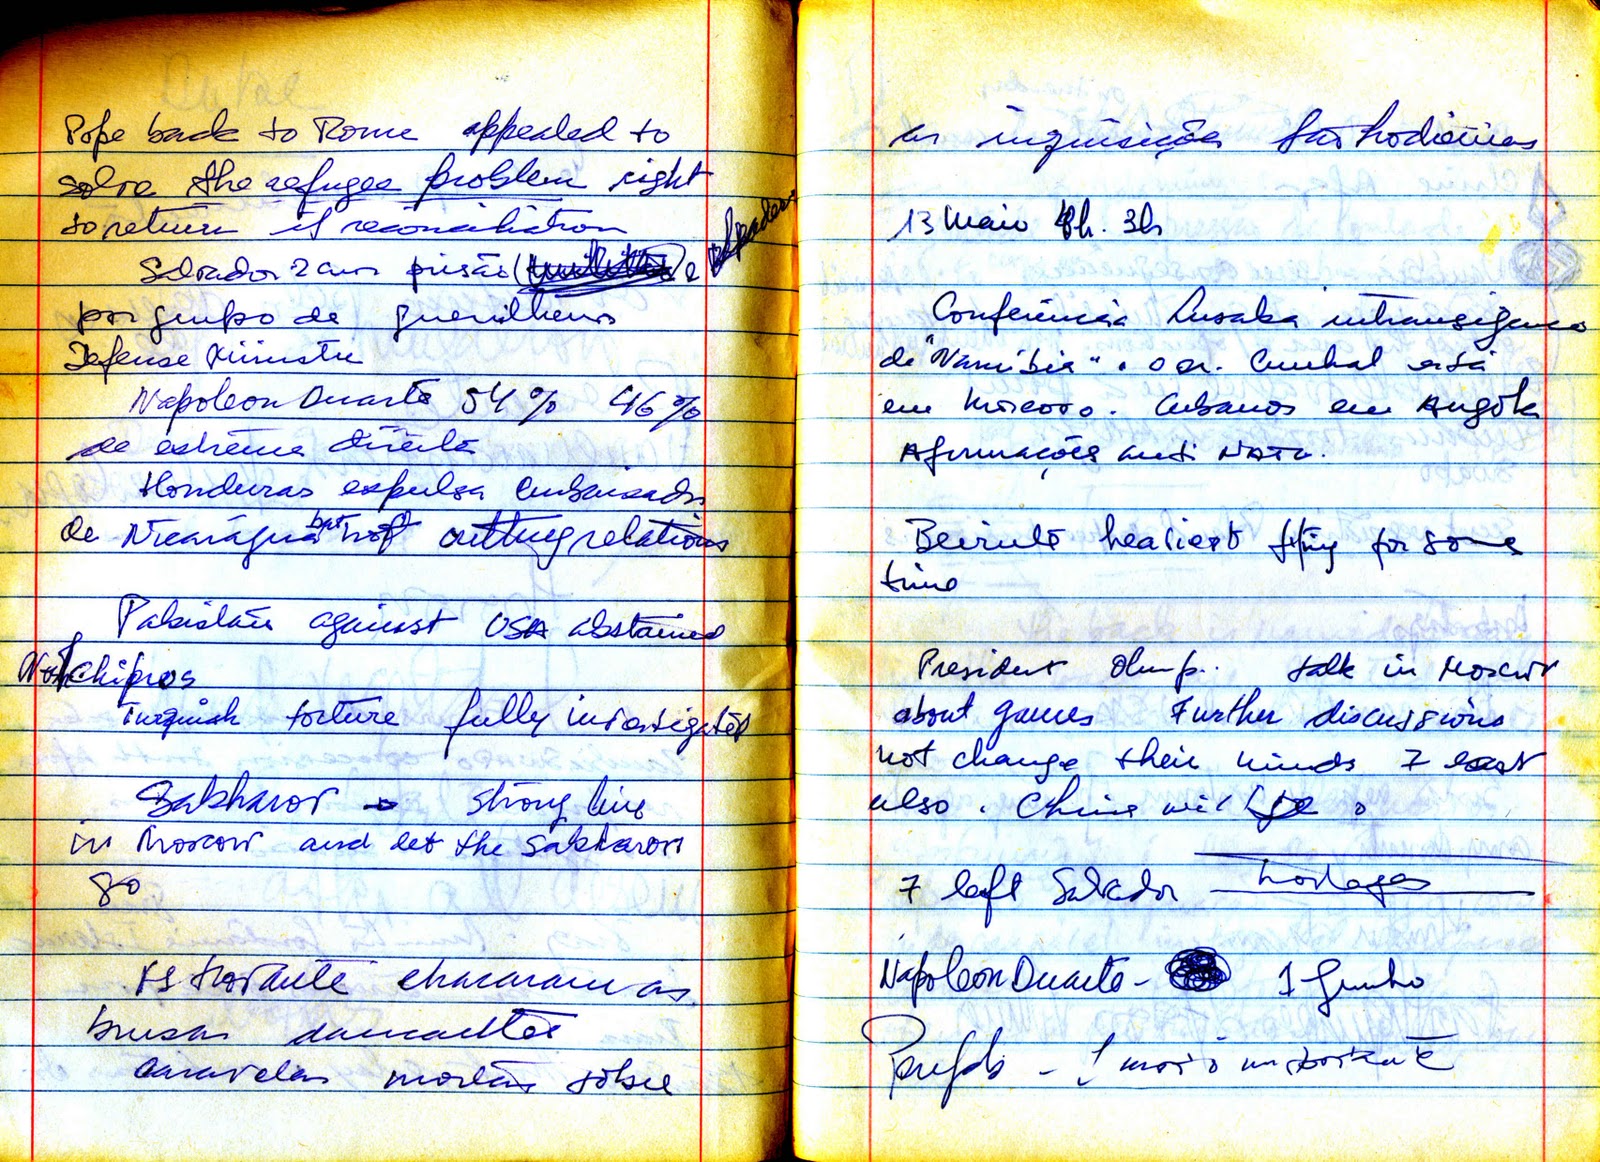 Pope back to Rome appealed to
solve the refugee problem right
to return if reconciliation
Salvador 2 anos prisão e
por grupo de guerilheiros
Defense Ministre
Napoleon Duarte 54% 46%
de estrema direita
Honduras expulsa Embaixador
de Nicarágua but not cutting relations
Pakistan against USA abstained
Not chipros
Turquish torture fully investigated
Sakharov strong line
in Moscow and let the Sakharov
go
as
brisas
Caravelas mortas sobre
as inquisições
13 Maio 3h
Conferência Lusaka intransigence
de "Namibia". o dr. Cunhal está
em Moscovo. Cubanos em Angola
Afirmações anti NATO.
Beirute heaviest for some
time
President Olimp.. talk in Moscow
about games Further discussions
not change their minds 7 east
also. China will
7 left Salvador hostages
Napoleon Duarte - 1 Junho
- 1 morto importante